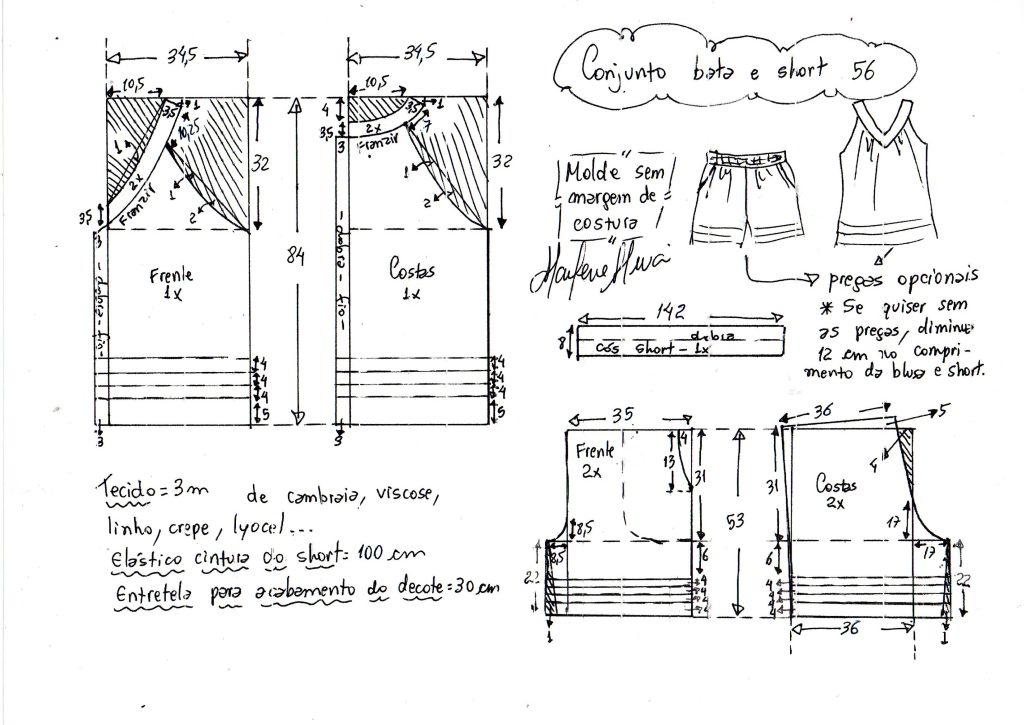 Conjunto bata e short 56
34,5
10,5
3,5
1
10,25
1
2x
Franzir
1
2
3,5
3
32
84
Frente
1x
dobra - fio
4
4
4
5
3
34,5
10,5
4
3,5
3
2x
Franzir
7
1
2
32
dobra - fio
Costas
1x
4
4
4
5
3
Molde sem
margem de
costura
Marlene Mukai
preças opcionais
* Se quiser sem
as preças, diminui
12 cm no compri-
mento da blusa e short.
142
8
dobra
cós short - 1x
Tecido = 3m de cambraia, viscose,
linho, crepe, lyocel...
Elástico cintura do short = 100 cm
Entretela para acabamento do decote = 30 cm
35
Frente
2x
4
13
31
8,5
8,5
6
22
4
4
4
4
1
53
36
5
4
Costas
2x
31
17
17
6
4
4
4
4
22
36
1